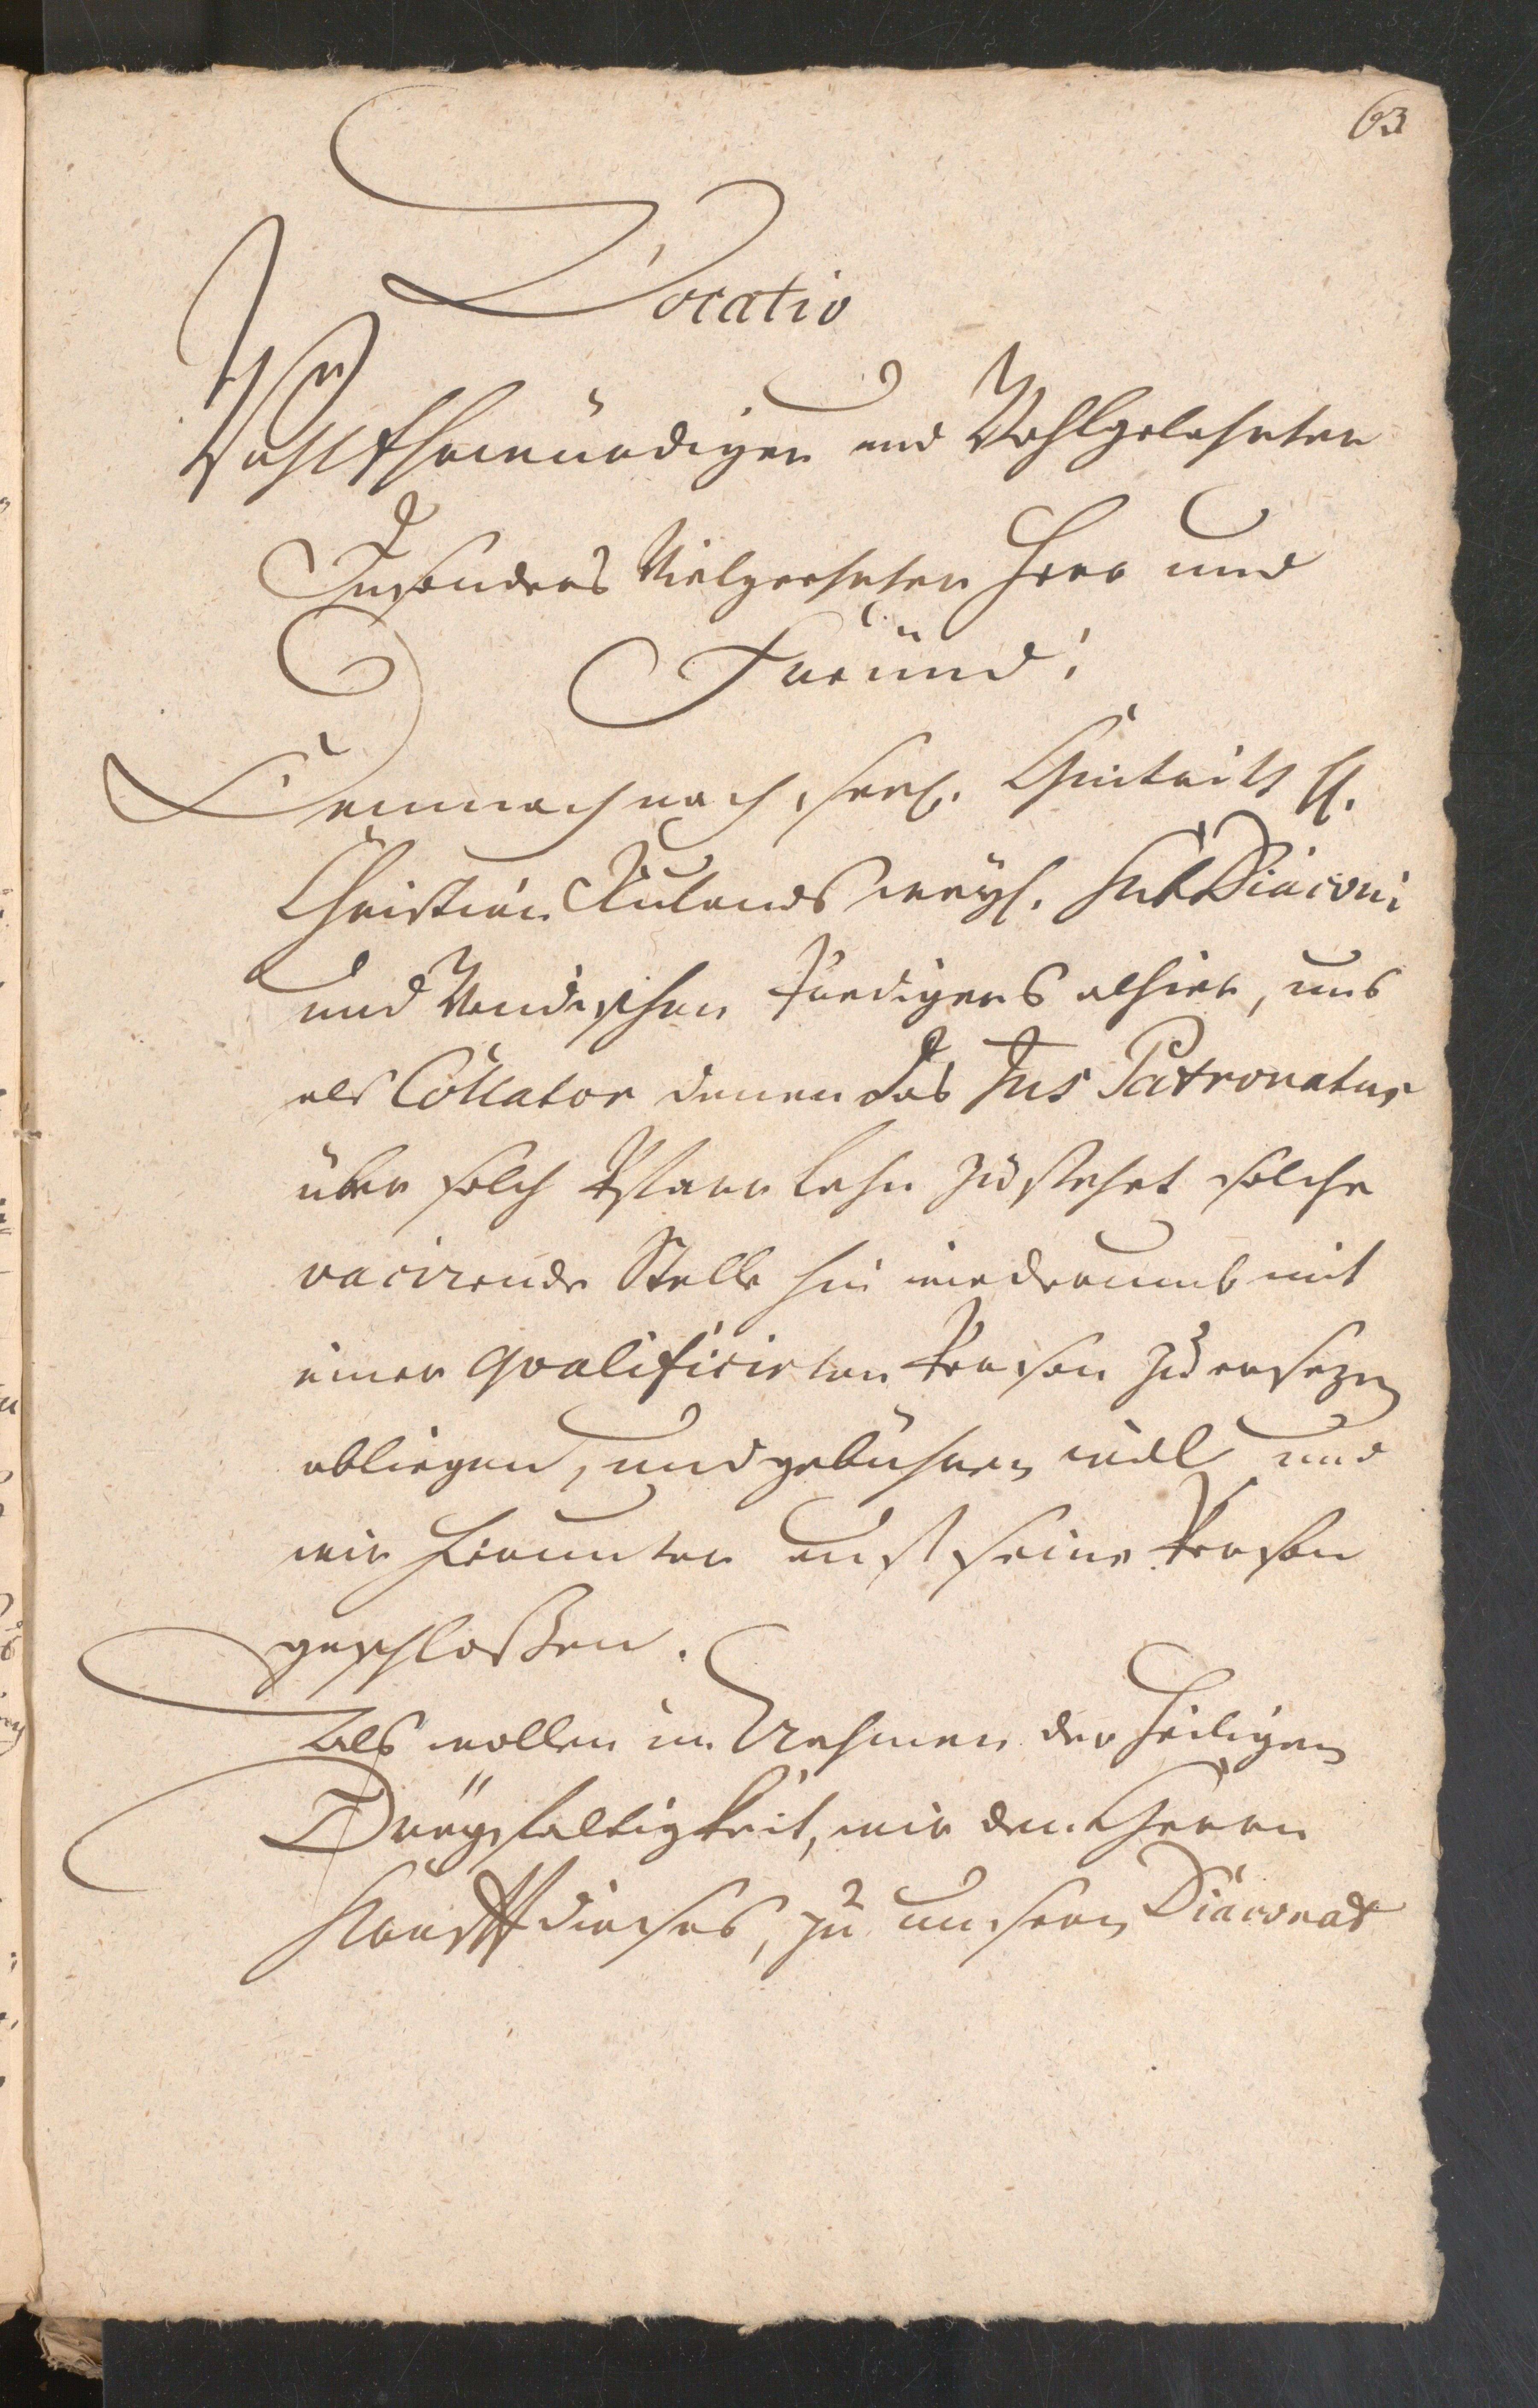 63
Vocatio
WohlEhrwürdiger und Wohlgelahrter
Insonders Vielgeehrter Herr und
Freünd!
Demnach nach seel. Hintritt H.
Christian Rulands weyl. SubDiaconi
und Wendischen Predigers alhier, uns
als Collator denen das Jus Patronatus
über solch Pfarr Lehn zustehet solche
vacirende Stelle hin wiederumb mit
einer qvalificirten Person zu ersezen
obliegen, und gebühren will und
wir hierunter auf seine Person
geschloßen.
Als wollen im Nahmen der heiligen
Dreyfaltigkeit, wir den Herrn
Krafft dieses, zu unsern Diaconat